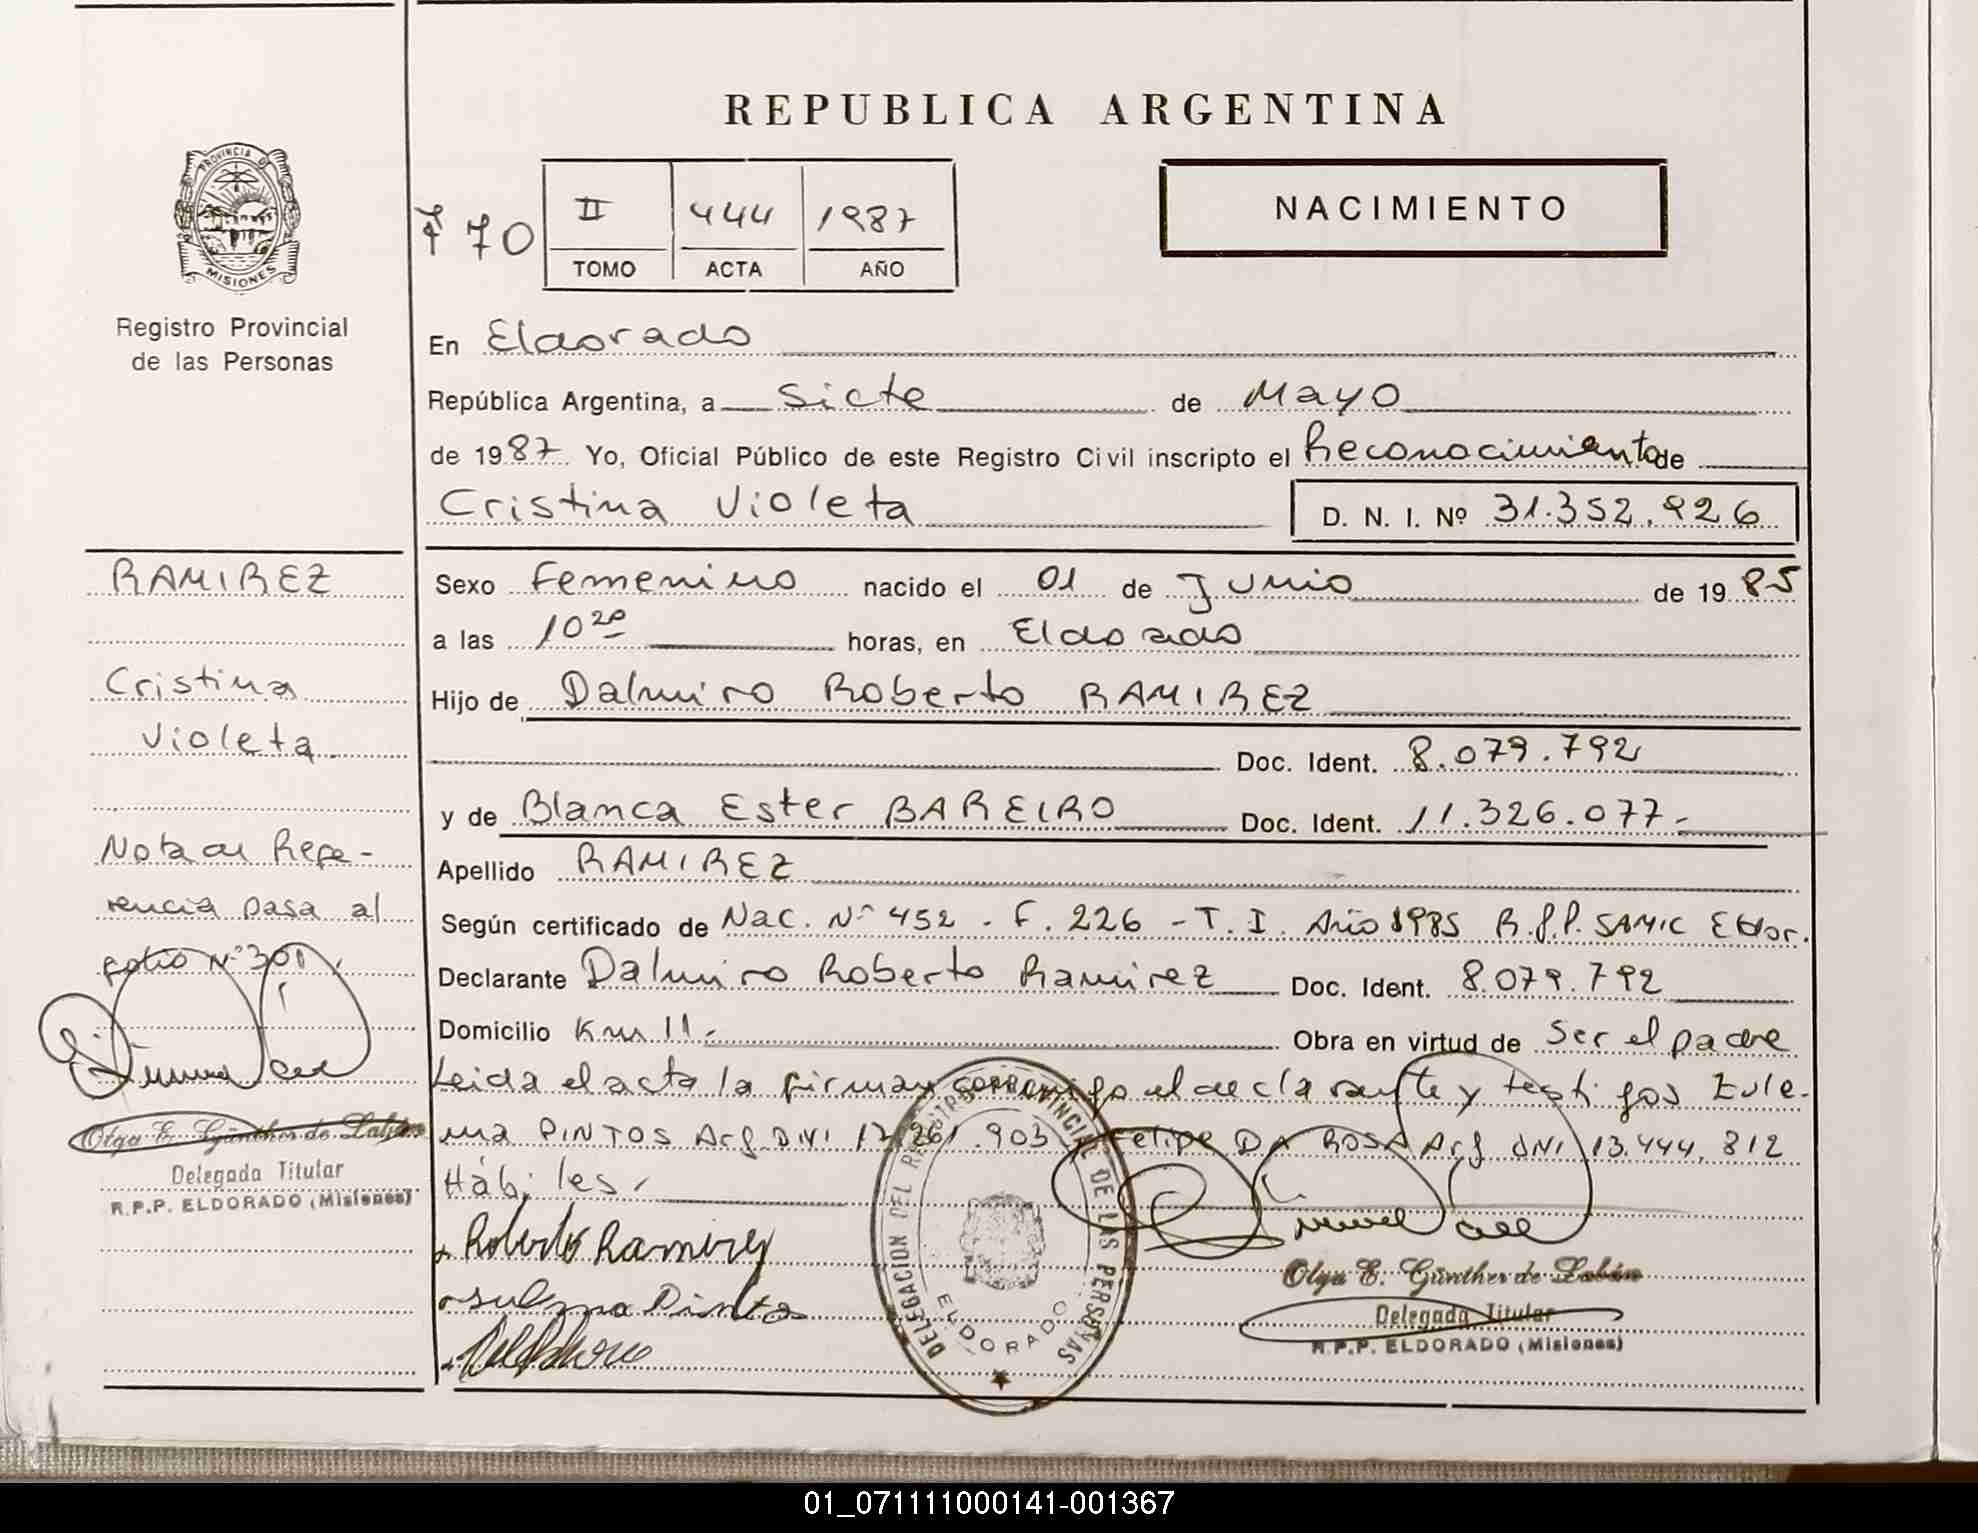 REPUBLICA ARGENTINA
PROVINCIA D
MISIONES
Registro Provincial
de las Personas
F 70
II 444 1987
TOMO ACTA AÑO
NACIMIENTO
En Eldorado
República Argentina, a siete de Mayo
de 1987. Yo, Oficial Público de este Registro Civil inscripto el Reconocimiento de
Cristina Violeta D. N. I. Nº 31.352.926
Sexo Femenino nacido el 01 de Junio de 1985
a las 10 20 horas, en Eldorado
Hijo de Dalmiro Roberto RAMIREZ
Doc. Ident. 8.079.792
y de Blanca Ester BAREIRO Doc. Ident. 11.326.077.-
Apellido RAMIREZ
Según certificado de Nac. Nº 452 - F. 226 - T. I. Año 1985 R.P.P. SAMIC Eldor.
Declarante Dalmiro Roberto Ramirez Doc. Ident. 8.079.792
Domicilio Km 11.- Obra en virtud de Ser el padre
Leida el acta la firman conmigo el declarante y testigos Zule-
ma PINTOS Arg DNI 17.261.903 Felipe DA ROSA Arg DNI 13.444.812
Hábiles.
Roberto Ramirez
Pinto
RAMIREZ
Cristina
Violeta.
Nota de Refe-
rencia pasa al
folio Nº 301.
Olga E. Günther de Labán
Delegada Titular
R.P.P. ELDORADO (Misiones)
DELEGACION DEL REGISTRO PROVINCIAL DE LAS PERSONAS
ELDORADO
Olga E. Günther de Labán
Delegada Titular
R.P.P. ELDORADO (Misiones)
01_071111000141-001367